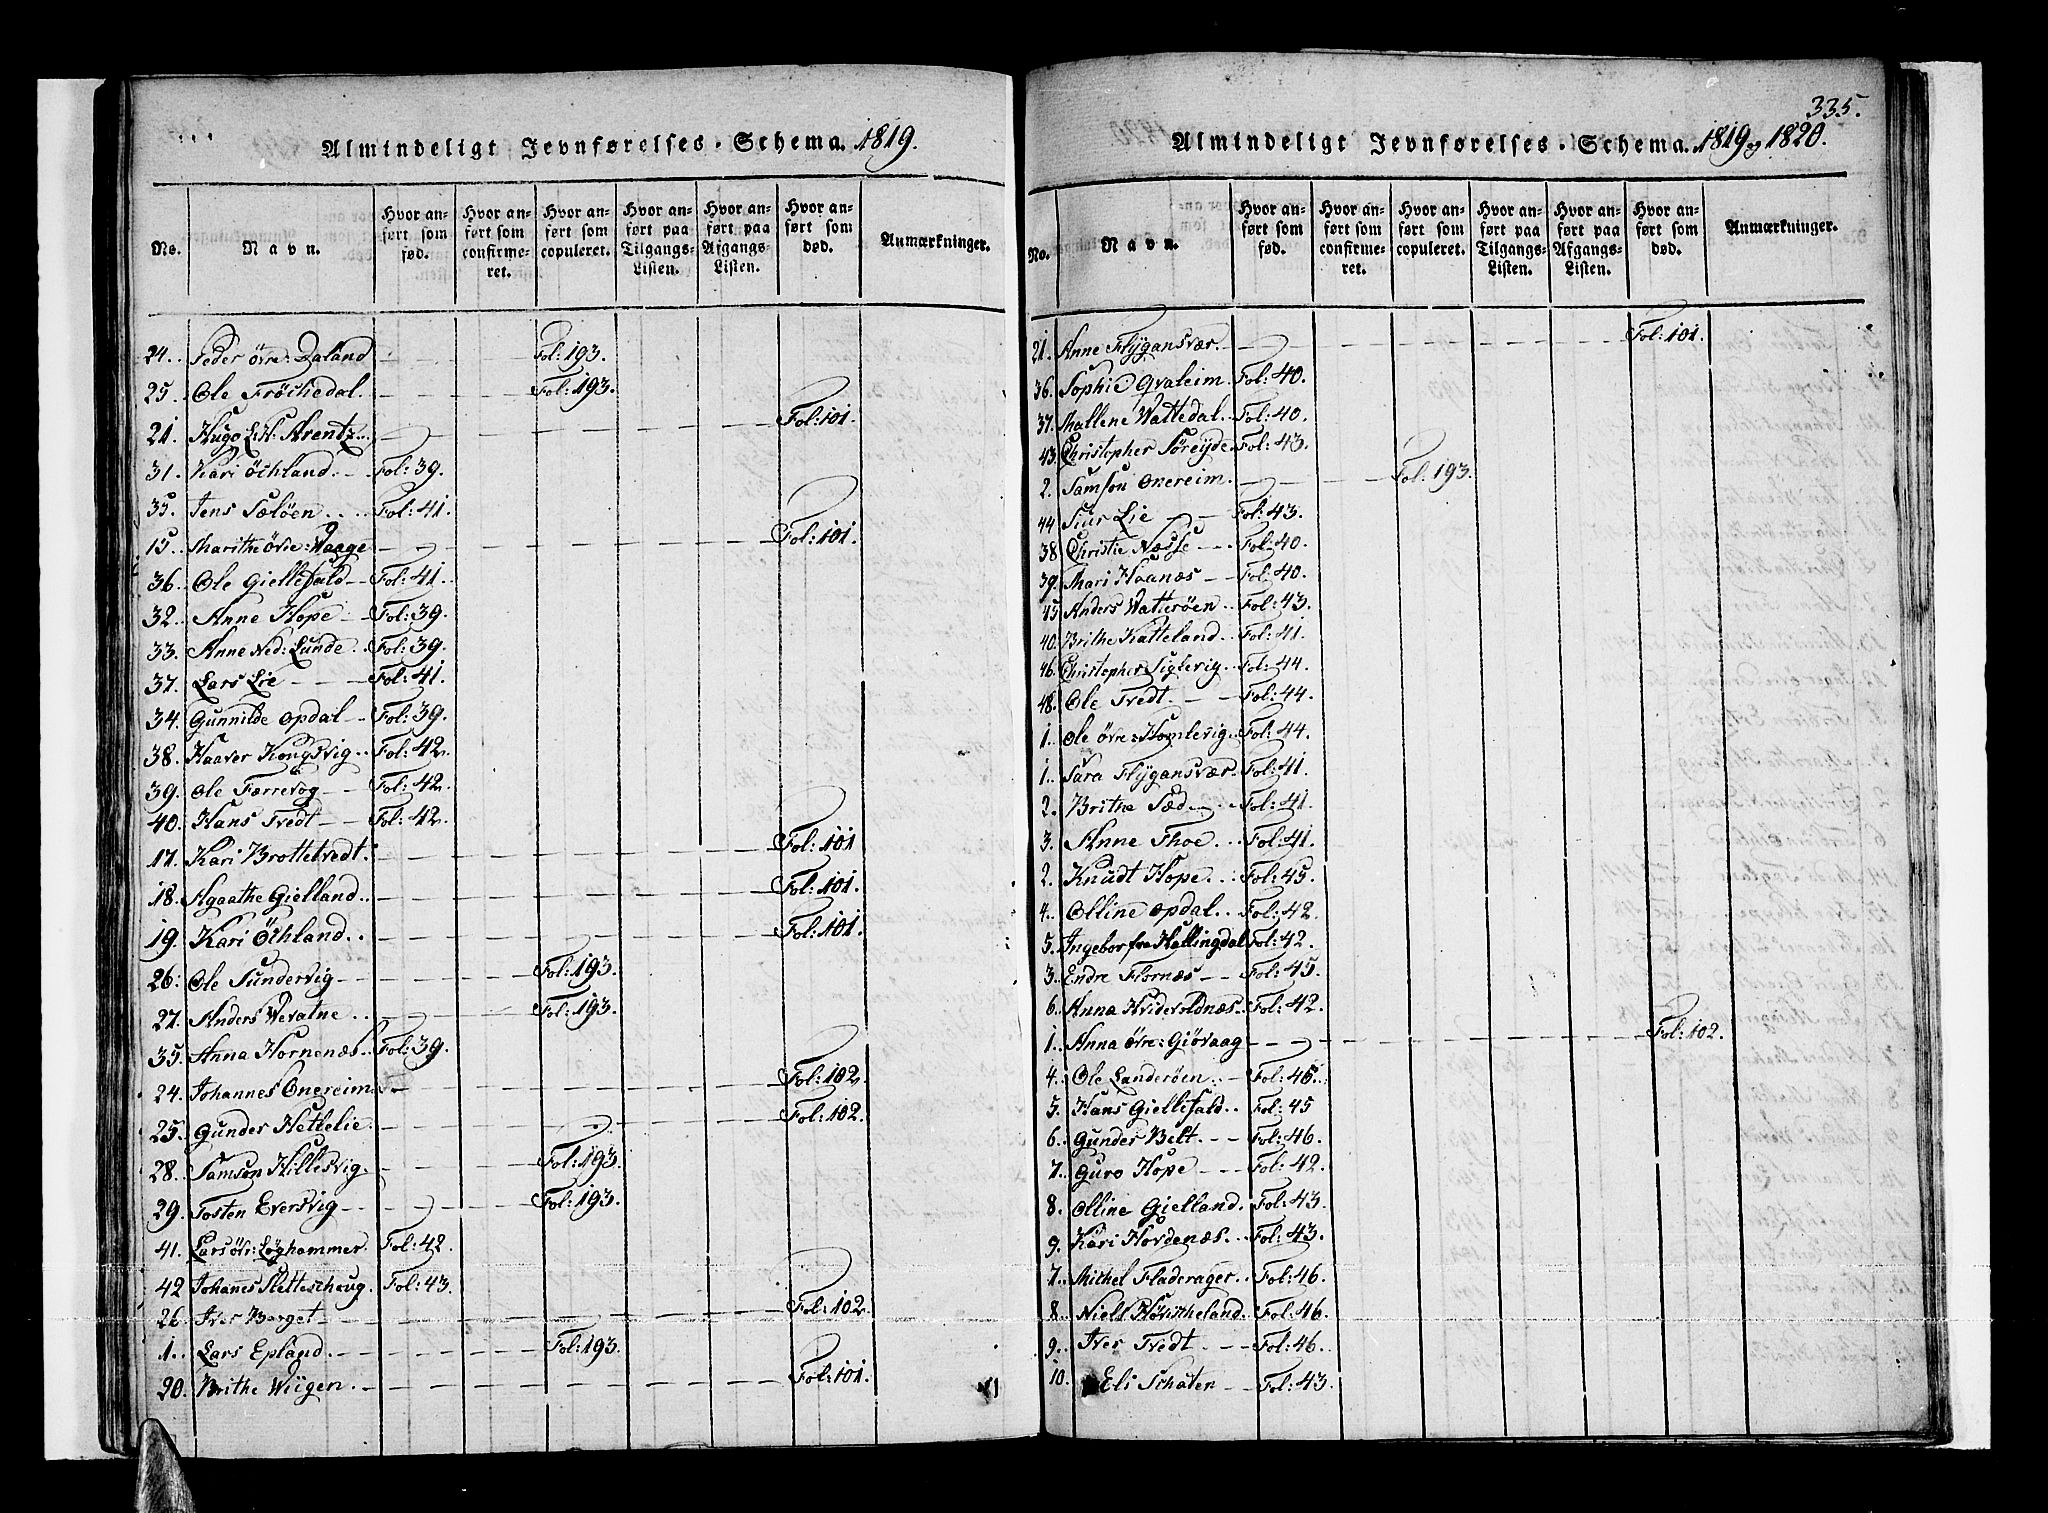 Almindeligt Jevnførelses-Schema. 1819.
No. Navn. Hvor anført som fød. Hvor anført som confirmeret. Hvor anført som copuleret. Hvor anført paa Tilgangs-Listen. Hvor anført paa Afgangs-Listen. Hvor anført som død. Anmærkninger.
24. Peder øvre: Daland Fol: 193.
25. Ole Frøchedal. Fol: 193.
21. Hugo Arentz Fol: 101.
31. Kari Øchland. Fol: 39.
35. Jens Sæløen Fol: 41.
15. Marithe Øvre: Waage Fol: 101.
36. Ole Giellefald Fol: 41.
32. Anne Hope Fol: 39.
33. Anne Ned: Lunde Fol: 39.
37. Lars Lie Fol: 41.
34. Gunnilde Opdal Fol: 39.
38. Haaver Kongsvig Fol: 42.
39. Ole Færrevog Fol: 42.
40. Hans Tvedt Fol: 42.
17. Kari Brottetvedt. Fol: 101
18. Agaathe Gielland Fol: 101.
19. Kari Øchland Fol: 101.
26. Ole Sundervig Fol: 193.
27. Anders Wevatne Fol: 193.
35. Anna Hornenæs Fol: 39.
24. Johannes Onereim Fol: 102.
25. Gunder Hettelie Fol: 102.
28. Samson Hillesvig. Fol: 193.
29. Tosten Eversvig Fol: 193.
41. Lars Øvr: Løghammer. Fol: 42.
42 Johannes Sletteschoug. Fol: 43.
26. Iver Berget Fol: 102.
1. Lars Epland. Fol: 193.
20. Brithe Wiigen Fol: 101.
335.
Almindeligt Jevnførelses-Schema. 1819 og 1820.
No. Navn. Hvor anført som fød. Hvor anført som confirmeret. Hvor anført som copuleret. Hvor anført paa Tilgangs-Listen. Hvor anført paa Afgangs-Listen. Hvor anført som død. Anmærkninger.
21. Anne Flÿgansvær Fol: 101.
36. Sophie Qvaleim Fol: 40.
37. Mallene Wattedal Fol: 40.
43. Christopher Søreÿde Fol: 43.
2. Samson Onereim. Fol: 193.
44 Siur Lie Fol: 43.
38 Christie Næsse Fol: 40.
39. Mari Haanæs Fol: 40.
45 Anders Watterøen Fol: 43.
40. Brithe Katteland Fol: 41.
46. Christopher Siglevig Fol: 44.
48. Ole Tvedt Fol: 44.
1. Ole Øvre: Homlevig Fol: 44.
1. Sara Flÿgansvær Fol: 41.
2. Brithe Sæd Fol: 41.
3. Anne Thoe Fol: 41.
2. Knudt Hope Fol: 45.
4. Olline Opdal Fol: 42.
5. Ingebor fra Hallingdal Fol: 42.
3. Endre Flornæs Fol: 45.
6. Anna Hvidevoldnæs Fol: 42.
1. Anna Øvre: Giøvaag Fol: 102.
4. Ole Landerøen Fol: 45.
5. Hans Giellefald Fol: 45
6. Gunder Belt Fol: 46.
7. Guro Hope Fol: 42.
8. Olline Gielland. Fol: 43.
9. Kari Hordenæs Fol: 43.
7. Michel Fladerager Fol: 46.
8. Niels Fol: 46.
9. Iver Tvedt Fol: 46.
10. Eli Schaten Fol: 43.